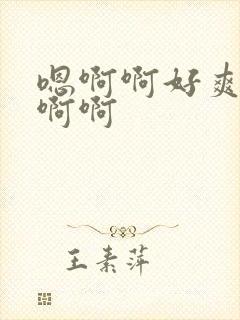 嗯啊啊好爽
啊啊
王素萍